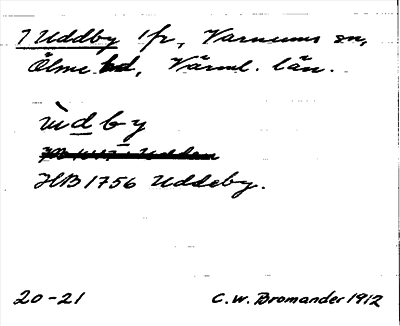 7 Uddby 1/2, Varnums sn,
Ölme hd, Värml. län.
ùdby
HB 1756 Uddeby.
20-21 C.W. Bromander 1912